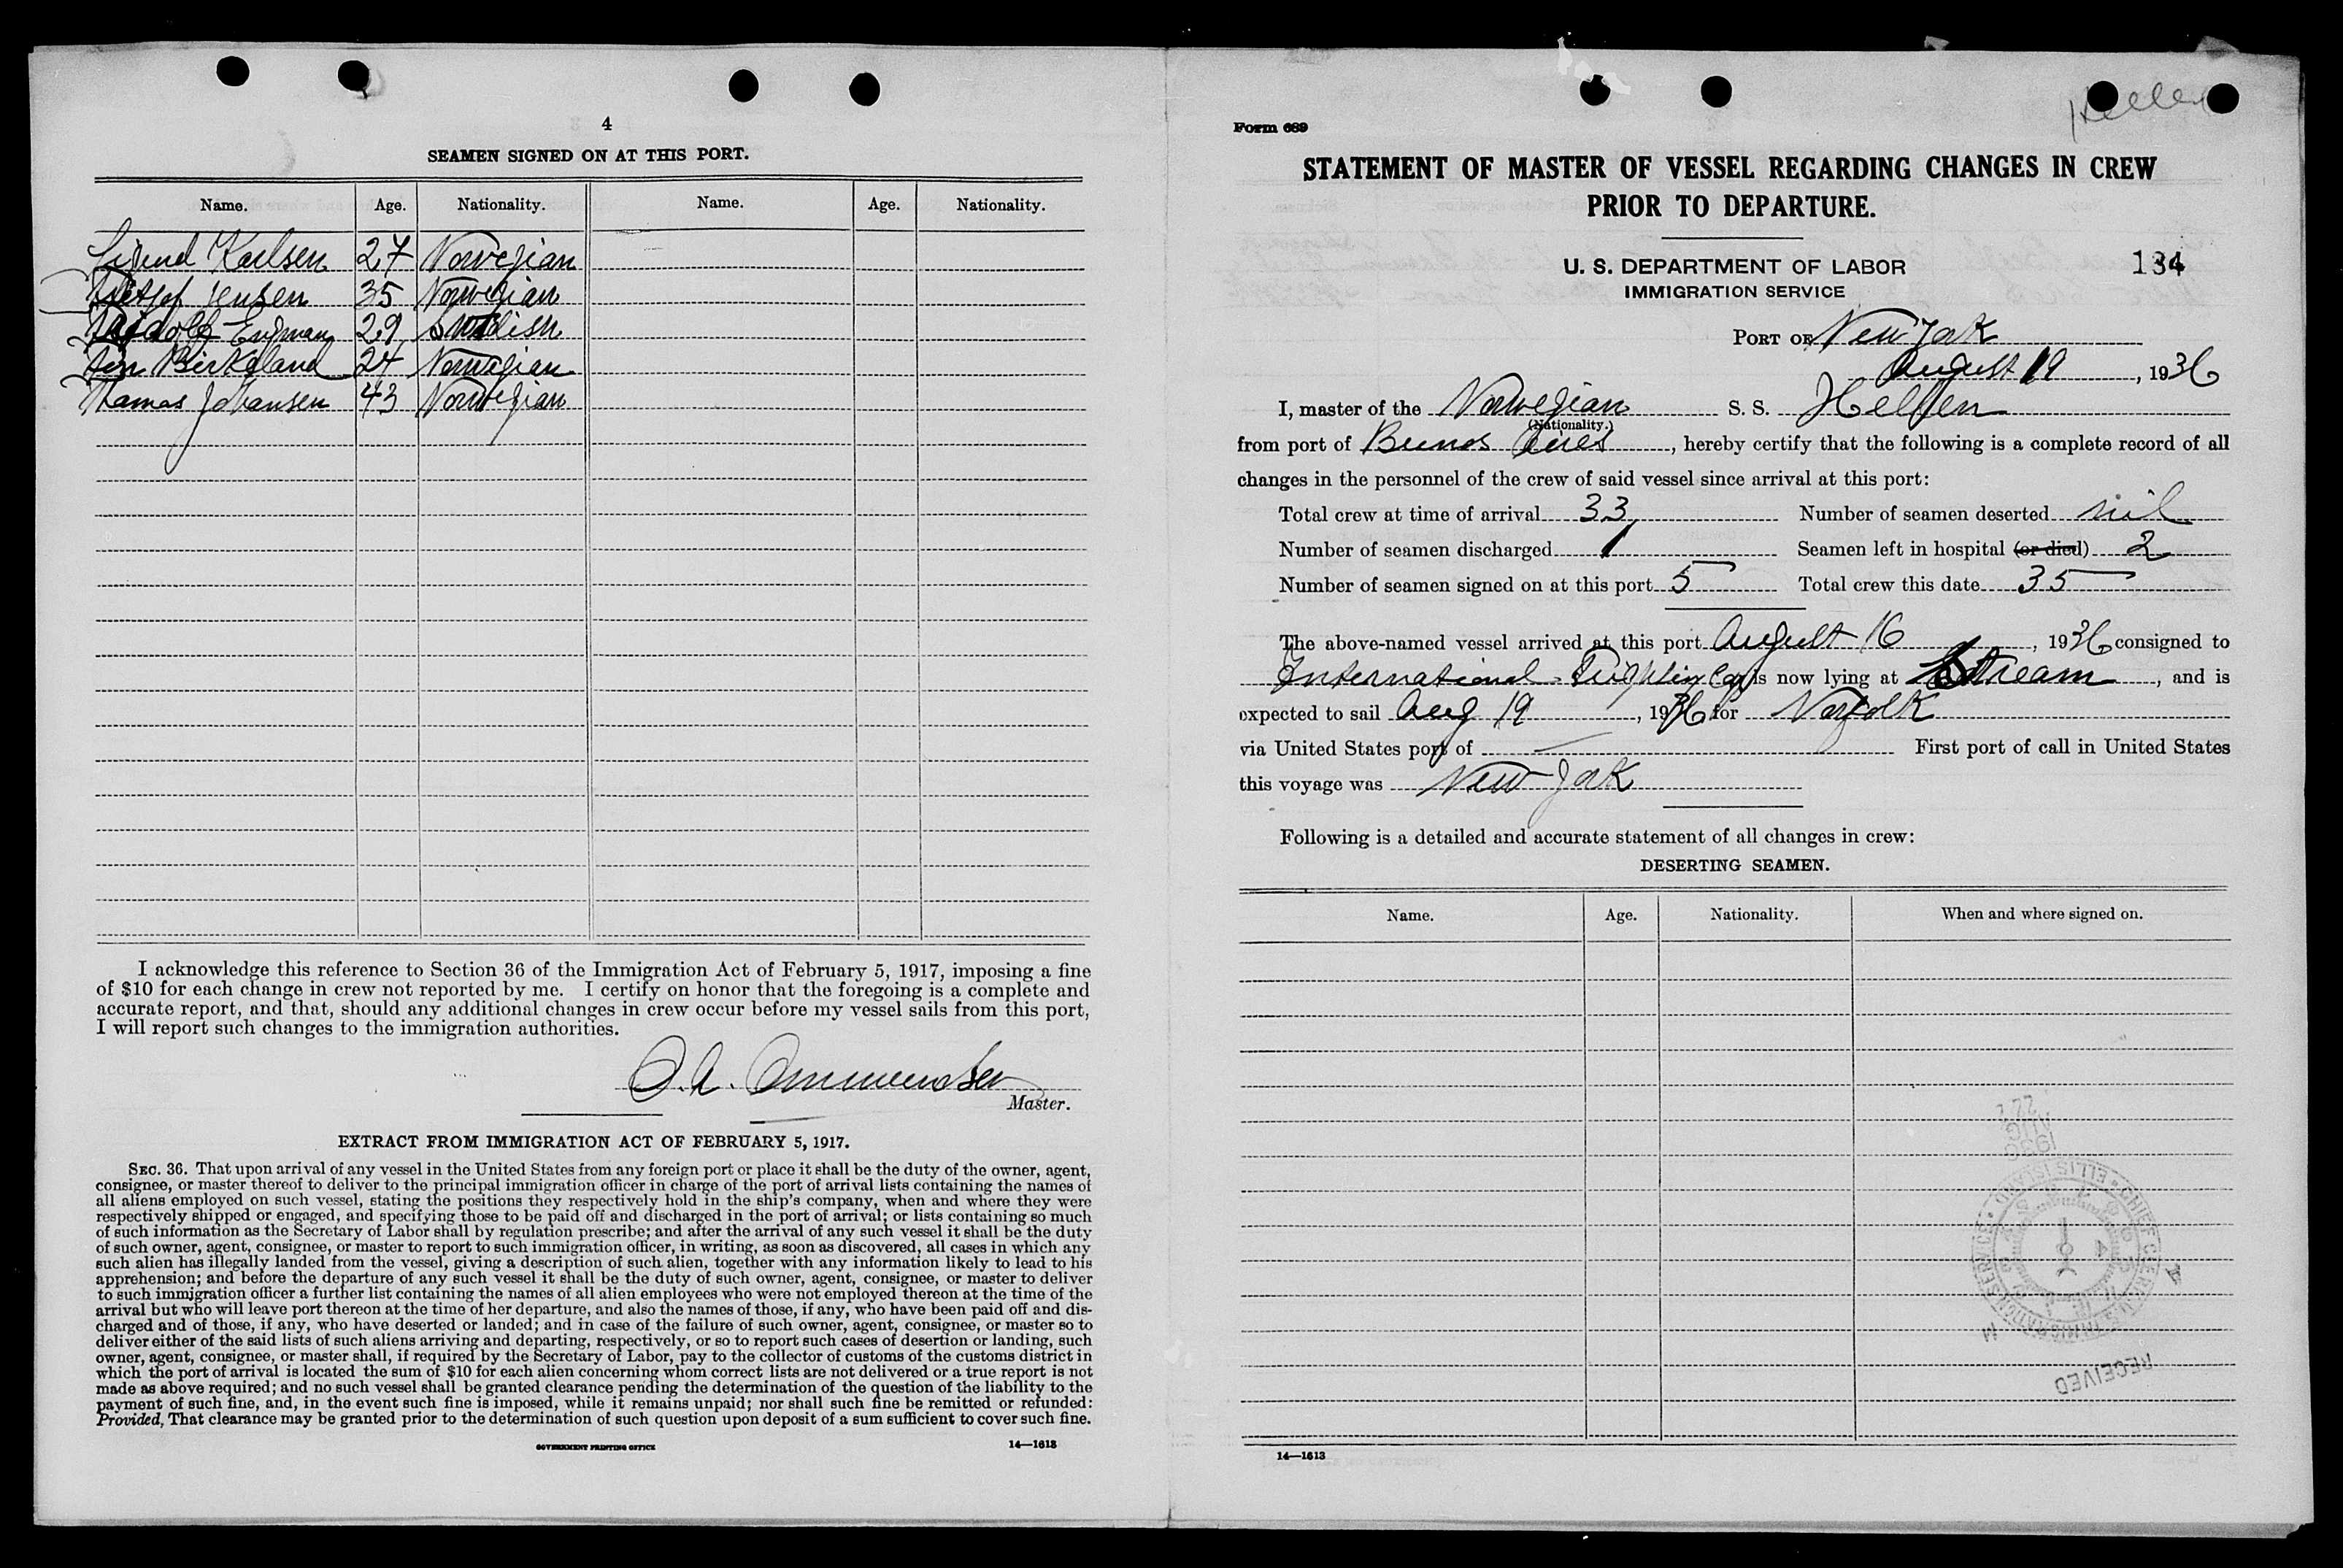 4
SEAMEN SIGNED ON AT THIS PORT.
Name. Age. Nationality. Name. Age. Nationality.
Sigurd Karlsen 27 Norwegian
Jensen 35 Norwegian
Engman 29 Swedish
Birkeland 24 Norwegian
Thomas Johansen 43 Norwegian
I acknowledge this reference to Section 36 of the Immigration Act of February 5, 1917, imposing a fine
of $10 for each change in crew not reported by me. I certify on honor that the foregoing is a complete and
accurate report, and that, should any additional changes in crew occur before my vessel sails from this port,
I will report such changes to the immigration authorities.
Master.
EXTRACT FROM IMMIGRATION ACT OF FEBRUARY 5, 1917.
SEC. 36. That upon arrival of any vessel in the United States from any foreign port or place it shall be the duty of the owner, agent,
consignee, or master thereof to deliver to the principal immigration officer in charge of the port of arrival lists containing the names of
all aliens employed on such vessel, stating the positions they respectively hold in the ship's company, when and where they were
respectively shipped or engaged, and specifying those to be paid off and discharged in the port of arrival; or lists containing so much
of such information as the Secretary of Labor shall by regulation prescribe; and after the arrival of any such vessel it shall be the duty
of such owner, agent, consignee, or master to report to such immigration officer, in writing, as soon as discovered, all cases in which any
such alien has illegally landed from the vessel, giving a description of such alien, together with any information likely to lead to his
apprehension; and before the departure of any such vessel it shall be the duty of such owner, agent, consignee, or master to deliver
to such immigration officer a further list containing the names of all alien employees who were not employed thereon at the time of the
arrival but who will leave port thereon at the time of her departure, and also the names of those, if any, who have been paid off and dis-
charged and of those, if any, who have deserted or landed; and in case of the failure of such owner, agent, consignee, or master so to
deliver either of the said lists of such aliens arriving and departing, respectively, or so to report such cases of desertion or landing, such
owner, agent, consignee, or master shall, if required by the Secretary of Labor, pay to the collector of customs of the customs district in
which the port of arrival is located the sum of $10 for each alien concerning whom correct lists are not delivered or a true report is not
made as above required; and no such vessel shall be granted clearance pending the determination of the question of the liability to the
payment of such fine, and, in the event such fine is imposed, while it remains unpaid; nor shall such fine be remitted or refunded:
Provided, That clearance may be granted prior to the determination of such question upon deposit of a sum sufficient to cover such fine.
GOVERNMENT PRINTING OFFICE 14—1613
Form 689
STATEMENT OF MASTER OF VESSEL REGARDING CHANGES IN CREW
PRIOR TO DEPARTURE.
U. S. DEPARTMENT OF LABOR
IMMIGRATION SERVICE
134
PORT OF New York
August 19, 1936
I, master of the Norwegian S. S. Hellen
(Nationality.)
from port of Buenos Aires, hereby certify that the following is a complete record of all
changes in the personnel of the crew of said vessel since arrival at this port:
Total crew at time of arrival 33 Number of seamen deserted nil
Number of seamen discharged 1 Seamen left in hospital (or died) 2
Number of seamen signed on at this port 5 Total crew this date 35
The above-named vessel arrived at this port August 16, 1936 consigned to
International is now lying at Stream, and is
expected to sail Aug 19, 1936 for Norfolk
via United States port of — First port of call in United States
this voyage was New York
Following is a detailed and accurate statement of all changes in crew:
DESERTING SEAMEN.
Name. Age. Nationality. When and where signed on.
1936
AUG
22
CHIEF CLERK U.S. IMMIGRATION SERVICE • ELLIS ISLAND •
RECEIVED
14—1613